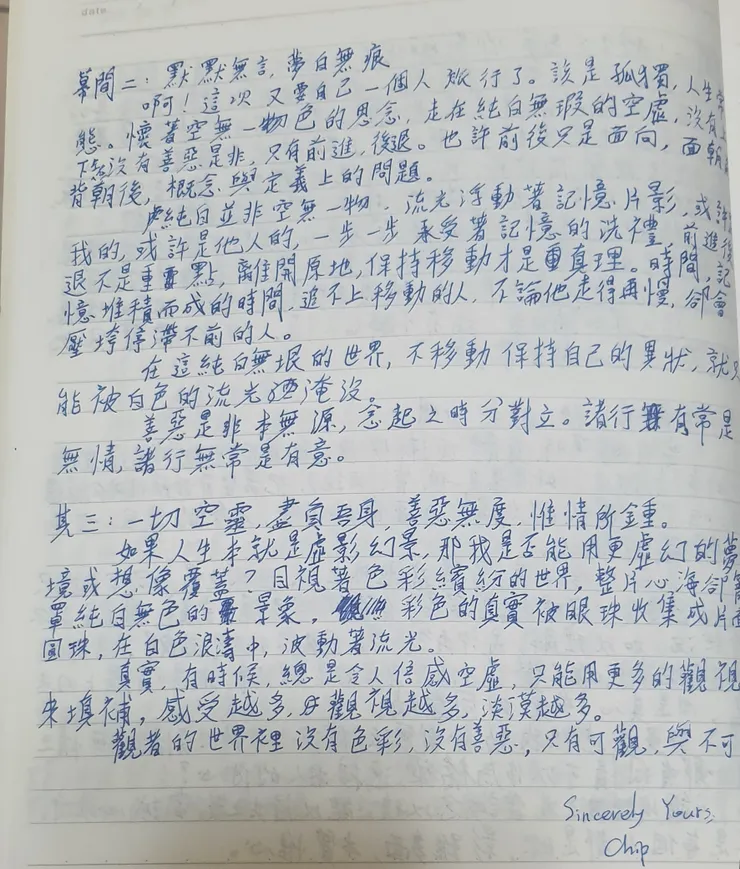 date
幕間二：默默無言，夢白無痕
啊！這次又要自己一個人旅行了。說是孤獨，人生常
態。懷著空無一物色的思念，走在純白無瑕的空虛，沒有上
下，沒有善惡是非，只有前進，後退。也許前後只是面向，面朝前
背朝後，概念與定義上的問題。
純白並非空無一物，流光浮動著記憶片影，或許
我的，或許是他人的，一步一步承受著記憶的洗禮，前進，後
退不是重點，離開原地，保持移動才是真理。時間，記
憶堆積而成的時間，追不上移動的人，不論他走得再慢，卻會
壓垮停滯不前的人。
在這純白無垠的世界，不移動保持自己的異狀，就只
能被白色的流光淹沒。
善惡是非本無源，念起之時分對立。諸行有常是
無情，諸行無常是有意。
其三：一切空靈，盡自吾身，善惡無度，惟情所鍾。
如果人生本就是虛影幻景，那我是否能用更虛幻的夢
境或想像覆蓋？目視著色彩繽紛的世界，整片心海卻
罩純白無色的景象，彩色的真實被眼珠收集成片面
圓珠，在白色浪濤中，波動著流光。
真實，有時候，總是令人倍感空虛，只能用更多的觀視
來填補，感受越多，觀視越多，淡漠越多。
觀者的世界裡沒有色彩，沒有善惡，只有可觀，與不可
Sincerely Yours,
Chip